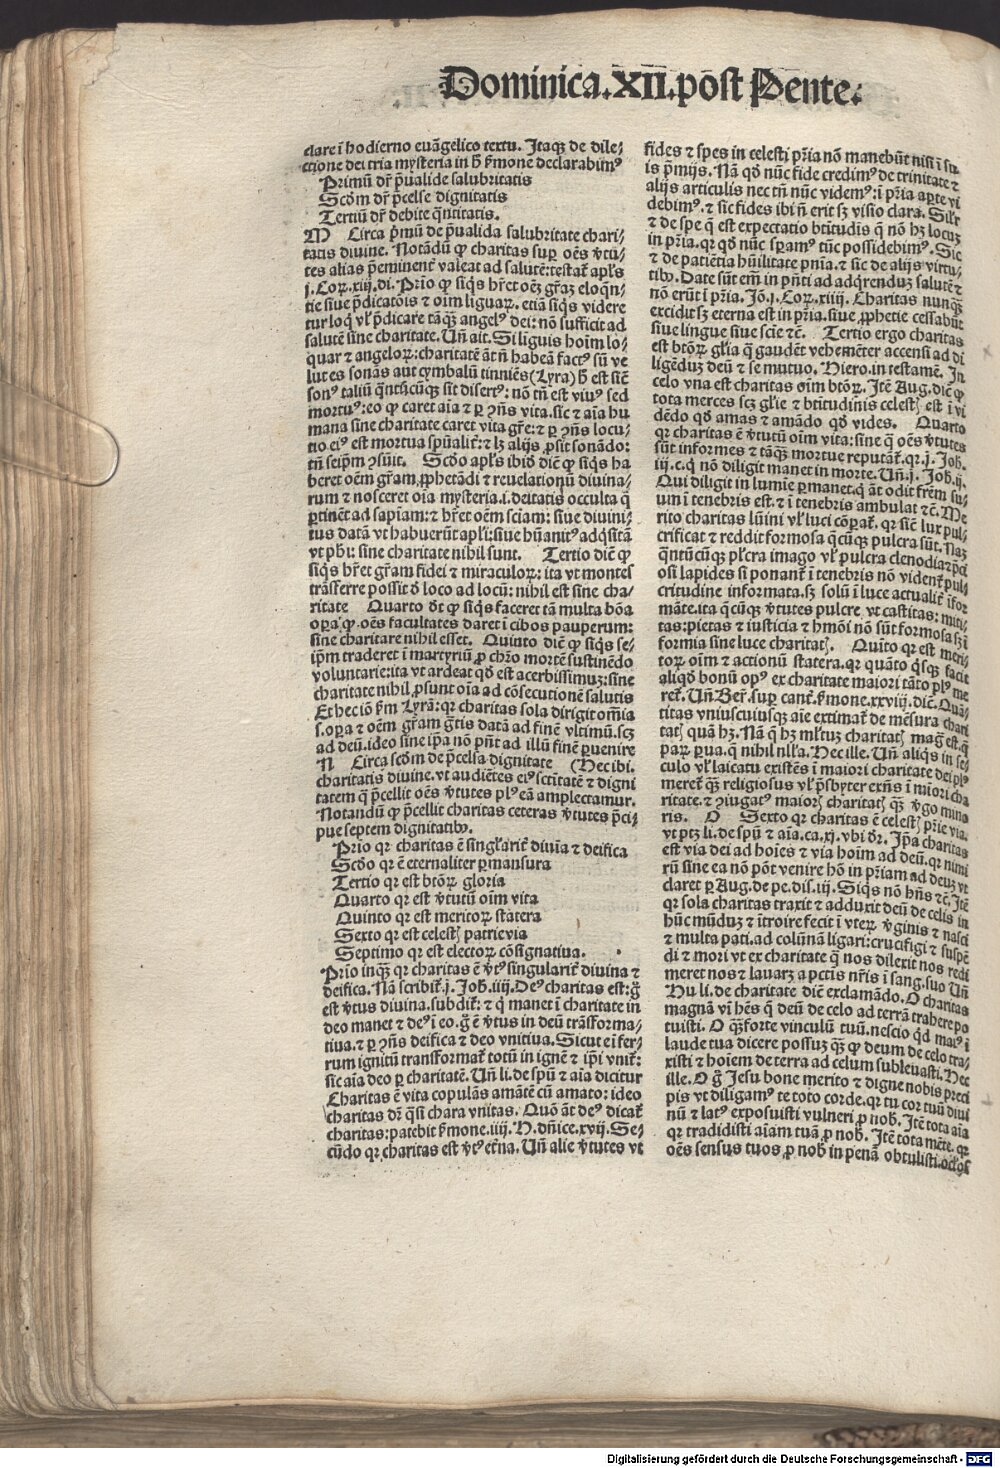 Dominica.XII.post Pente.
clare ī hodierno euāgelico textu. Itaqꝫ de dile⸗
ctione dei tria mysteria in h̄ ẜmone declarabimꝰ
Primū dr̄ p̄ualide salubritatis
Scd̄m dr̄ p̄celse dignitatis
Tertiū dr̄ debite q̄ntitatis.
M Circa p̄mū de p̄ualida salubritate chari⸗
tatis divine. Notādū ꝙ charitas suꝑ oēs v̄tu⸗
tes alias p̄eminent̄ valeat ad salutē: testat̄ apl̄s
j. Coꝝ. xiij. di. Prīo ꝙ siqs hr̄et oēꝫ gr̄aꝫ eloqn̄⸗
tie siue p̄dicatōis ⁊ oīm liguaꝝ. etiā siqs videre
tur loqͥ vl̓ p̄dicare tāqꝫ angelꝰ dei: nō sufficit ad
salutē sine charitate. Un̄ ait. Si liguis hoīm lo⸗
quar ⁊ angeloꝝ: charitatē āt n̄ habeā factꝰ sū ve
lut es sonās aut cymbalū tinniēs (Lyra) h̄ est sic̄
sonꝰ taliū qn̄tūcūqꝫ sit disertꝰ: nō tn̄ est viuꝰ sed
mortuꝰ: eo ꝙ caret aīa ⁊ ꝑ ꝯn̄s vita. sic ⁊ aīa hu
mana sine charitate caret vita gr̄e: ⁊ ꝑ ꝯn̄s locu⸗
tio eiꝰ est mortua spūalit̄: ⁊ lꝫ alijs ꝓsit sonādo:
tn̄ seip̄m ꝯsūit. Scd̄o apl̄s ibid̄ diē ꝙ siqs ha
beret oēm gr̄am, ꝓphetādi ⁊ reuelationū diuina⸗
rum ⁊ nosceret oīa mysteria. i. deitatis occulta q̄
ꝑtinēt ad sapīam: ⁊ hr̄et oēm sciam: siue diuini⸗
tus datā vt habuerūt apl̄i: siue hūanitꝰ adqͥsitā
vt pħi: sine charitate nihil sunt. Tertio diē ꝙ
siqs hr̄et gr̄am fidei ⁊ miraculoꝝ: ita vt montes
trāsferre possit d̄ loco ad locū: nihil est sine cha⸗
ritate Quarto d̄t ꝙ siqs faceret tā multa bōa
oꝑa ꝙ. oēs facultates daret ī cibos pauperum:
sine charitare nihil esset. Quinto diē ꝙ siqs se⸗
ip̄m traderet ī martyriū ꝓ chr̄o mortē sustinēdo
voluntarie: ita vt ardeat qd̄ est acerbissimuꝫ: sine
charitate nihil ꝓsunt oīa ad cōsecutionē salutis
Et hec iō ẜm Lyrā: qꝛ charitas sola dirigit om̄ia
s. oꝑa ⁊ oēm gr̄am gr̄tis datā ad finē vltimū. scꝫ
ad deū. ideo sine ip̄a nō pn̄t ad illū finē ꝑuenire
N Circa scd̄m de p̄celsa dignitate (Hec ibi.
charitatis diuine. vt audiētes eiꝰ scītatē ⁊ digni
tatem qͣ p̄cellit oēs v̄tutes plꝰ eā amplectamur.
Notandū ꝙ p̄cellit charitas ceteras v̄tutes p̄ci⸗
pue septem dignitatibꝰ.
Prīo qꝛ charitas ē singl̄arit̄ diuīa ⁊ deifica
Scd̄o qꝛ ē eternaliter ꝑmansura
Tertio qꝛ est btōꝝ gloria
Quarto qꝛ est v̄tutū oīm vita
Quinto qꝛ est meritoꝝ statera
Sexto qꝛ est celestꝭ patrie via
Septimo qꝛ est electoꝝ cōsignatiua.
Prīo inqꝫ qꝛ charitas ē v̄tꝰ singularit̄ diuina ⁊
deifica. Nā scribit̄. j. Joħ. iiij. Deꝰ charitas est: g̊
est v̄tus diuina. subdit̄: ⁊ qͥ manet ī charitate in
deo manet ⁊ deꝰ ī eo. g̊ ē v̄tus in deū trāsforma⸗
tiua. ⁊ ꝑ ꝯn̄s deifica ⁊ deo vnitiua. Sicut ei fer⸗
rum ignitū transformat̄ totū in ignē ⁊ ip̄i vnit̄:
sic aīa deo ꝑ charitatē. Un̄ li. de spū ⁊ aīa dicitur
Charitas ē vita copulās amātē cū amato: ideo
charitas dr̄ qsi chara vnitas. Quō āt deꝰ dicat̄
charitas: patebit ẜmone. iiij. H. dn̄ice. xvij. Se⸗
cūdo qꝛ charitas est v̄tꝰ et̄na. Un̄ alie v̄tutes vt
fides ⁊ spes in celesti pr̄ia nō manebūt nisi ī su
is p̄mijs. Nā qd̄ nūc fide credimꝰ de trinitate ⁊
alijs articulis nec tn̄ nūc videmꝰ: ī pr̄ia aꝑte vi
debimꝰ. ⁊ sic fides ibi n̄ erit sꝫ visio clara. Sil̄r
⁊ de spe q̄ est expectatio btītudis q̄ nō hꝫ locuꝫ
in pr̄ia. qꝛ qd̄ nūc speramꝰ tūc possidebimꝰ. Sic
⁊ de patiētia hūilitate pnīa. ⁊ sic de alijs virtu⸗
tibꝰ. Date sūt em̄ in pn̄ti ad adqͥrenduꝫ salutē ⁊
nō erūt ī pr̄ia. Iō. j. Coꝝ. xiij. Charitas nunqꝫ
excidit sꝫ eterna est in pr̄ia. siue ꝓphetie cessabūt
siue lingue siue scīe ⁊c̄. Tertio ergo charitas
est btōꝝ gl̄ia q̄ gaudēt vehemēter accensi ad di
ligēduꝫ deū ⁊ se mutuo. Hiero. in testamē. In
celo vna est charitas oīm btōꝝ. Itē Aug. diē ꝙ
tota merces scꝫ gl̄ie ⁊ btītudinis celestꝭ est ī vi
dēdo qd̄ amas ⁊ amādo qd̄ vides. Quarto
qꝛ charitas ē v̄tutū oīm vita: sine q̄ oēs v̄tutes
sūt informes ⁊ tāqꝫ mortue reputāt̄. qꝛ. j. Joħ.
iij. c. qͥ nō diligit manet in morte. Un̄. j. Joħ. ij.
Qui diligit in lumīe ꝑmanet. qͥ āt odit fr̄em su⸗
um ī tenebris est. ⁊ ī tenebris ambulat ⁊c̄. Me
rito charitas lūini vl̓ luci cōꝑat̄. qꝛ sic̄ lux pul⸗
crificat ⁊ reddit formosa q̄cūqꝫ pulcra sūt. Naꝫ
qn̄tūcūqꝫ pl̄cra imago vl̓ pulcra clenodia ⁊ p̄ci
osi lapides si ponant̄ ī tenebris nō vident̄ pul
critudine informata. sꝫ solū ī luce actualit̄ īfor
māte. ita q̄cūqꝫ v̄tutes pulcre vt castitas: miti⸗
tas: pietas ⁊ iusticia ⁊ hmōi nō sūt formosa sꝫ ī
formia sine luce charitatꝭ. Quīto qꝛ est meri⸗
toꝝ oīm ⁊ actionū statera. qꝛ quāto qͥsqꝫ facit
aliqd̄ bonū opꝰ ex charitate maiori tāto plꝰ me
ret̄. Un̄ Ber̄. suꝑ cant̄. ẜmone. xxviij. diē. Quā⸗
titas vniuscuiusqꝫ aīe extimat̄ de mēsura chari
tatꝭ quā hꝫ. Nā q̄ hꝫ ml̄tuꝫ charitatꝭ magͣ est. q̄
paꝝ parua. q̄ nihil nll̄a. Hec ille. Un̄ aliqs in se⸗
culo vl̓ laicatu existēs ī maiori charitate dei plꝰ
meret̄ qꝫ religiosus vl̓ p̄sbyter exn̄s ī mīori cha
ritate. ⁊ ꝯiugatꝰ maiorꝭ charitatꝭ qꝫ v̄go mino
ris. O Sexto qꝛ charitas ē celestꝭ pr̄ie via.
vt ptꝫ li. de spū ⁊ aīa. ca. xj. vbi dr̄. Ip̄a charitas
est via dei ad hoīes ⁊ via hoīm ad deū. qꝛ nimi
rū sine ea nō pōt venire hō in pr̄iam ad deuꝫ vt
claret ꝑ Aug. de pe. dis. iij. Siqs nō hn̄s ⁊c̄. Itē
qꝛ sola charitas traxit ⁊ adduxit deū de celis in
hūc mūduꝫ ⁊ ītroire fecit ī vteꝝ v̄ginis ⁊ nasci
⁊ multa pati. ad colūnā ligari: crucifigi ⁊ suspē
di ⁊ mori vt ex charitate qͣ nos dilexit nos redi
meret nos ⁊ lavarꝫ a pctīs nr̄is ī sang. suo Un̄
Hu li. de charitate diē exclamādo. O charitas
magnā vī hēs qͣ deū de celo ad terrā trahere po
tuisti. O qꝫ forte vinculū tuū. nescio qd̄ maiꝰ ī
laude tua dicere possuꝫ qꝫ ꝙ deum de celo tra⸗
xisti ⁊ hoīem de terra ad celum subleuasti. Hec
ille. O g̊ Jesu bone merito ⁊ digne nobis preci
pis vt diligamꝰ te toto corde. qꝛ tu cor tuū diui
nū ⁊ latꝰ exposuisti vulneri ꝓ nobꝭ. Itē tota aīa
qꝛ tradidisti aīam tuā ꝓ nobꝭ. Itē tota mēte. qꝛ
oēs sensus tuos ꝓ nobꝭ in penā obtulisti.
Digitalisierung gefördert durch die Deutsche Forschungsgemeinschaft - DFG